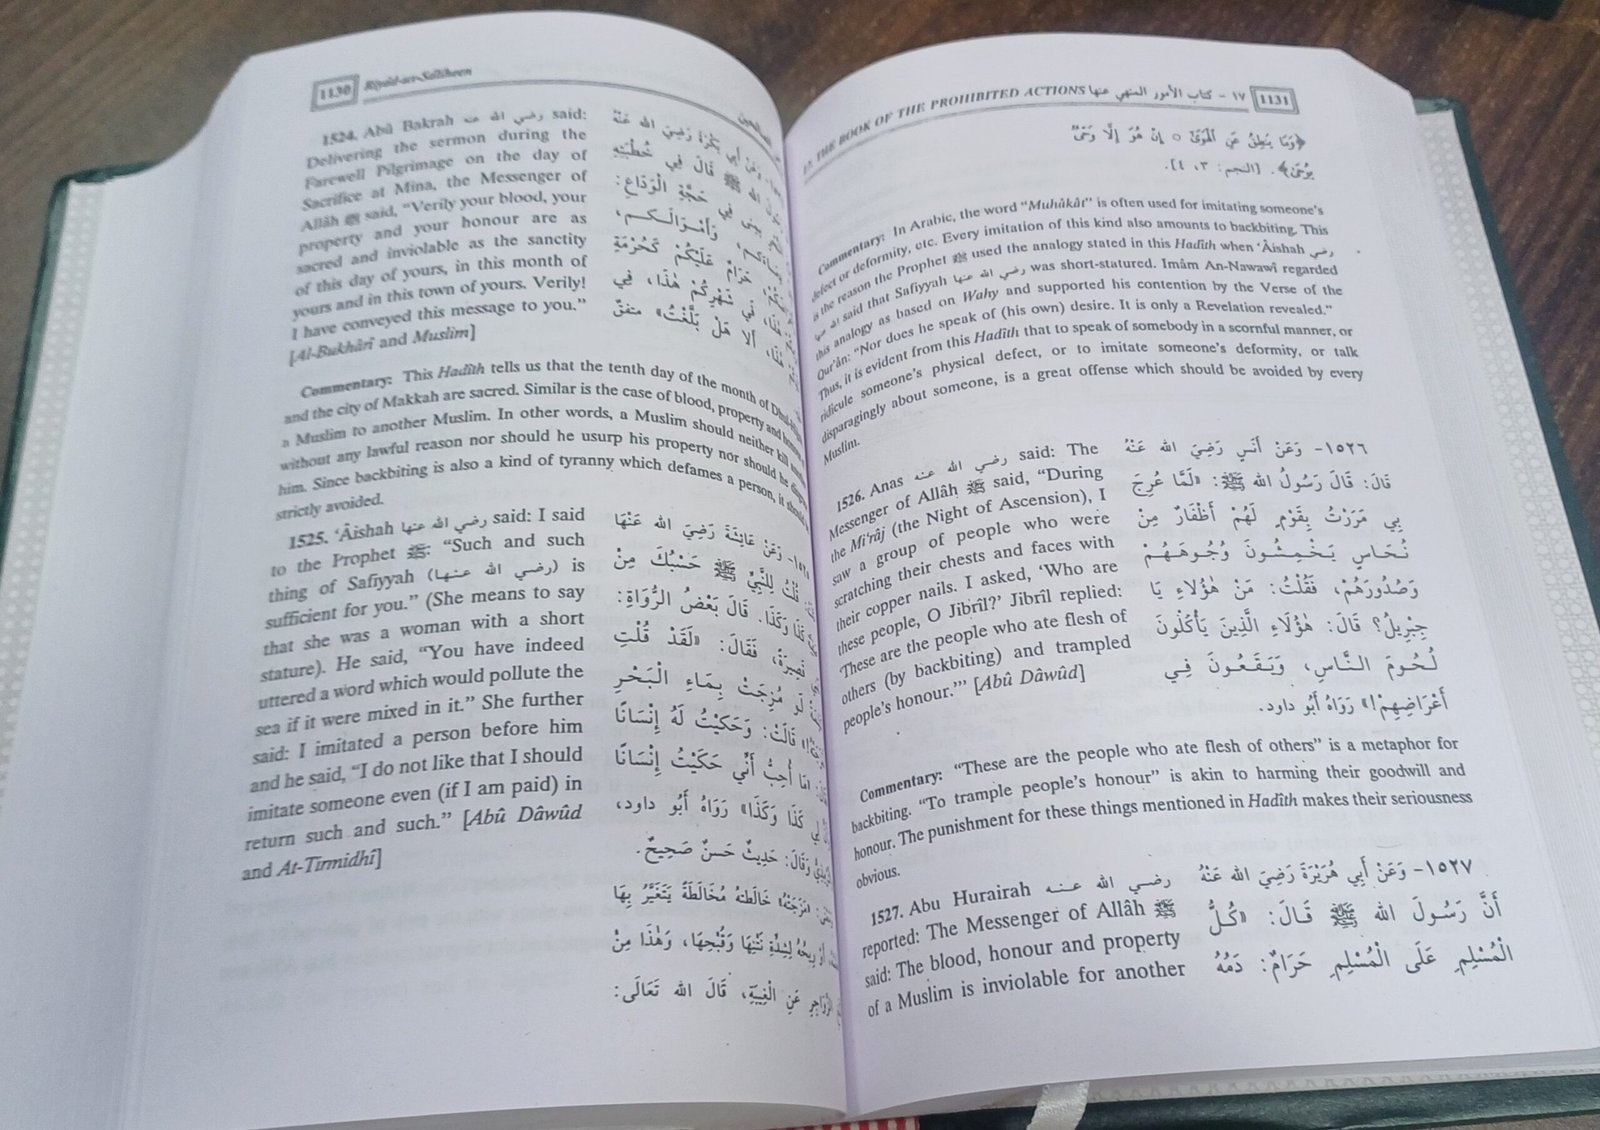 1130
Riyâd-us-Sâliheen
1524. Abû Bakrah رضي الله عنه said:
Delivering the sermon during the
Farewell Pilgrimage on the day of
Sacrifice at Mina, the Messenger of
Allâh ﷺ said, “Verily your blood, your
property and your honour are as
sacred and inviolable as the sanctity
of this day of yours, in this month of
yours and in this town of yours. Verily!
I have conveyed this message to you.”
[Al-Bukhârî and Muslim]
وَعَنْ أَبِي بَكْرَةَ رَضِيَ الله عَنْهُ
الله ﷺ قَالَ فِي خُطْبَتِهِ
فِي حَجَّةِ الْوَدَاعِ:
وَأَمْوَالَكُمْ،
حَرَامٌ عَلَيْكُمْ كَحُرْمَةِ
شَهْرِكُمْ هٰذَا، فِي
أَلَا هَلْ بَلَّغْتُ» متفقٌ
Commentary: This Hadîth tells us that the tenth day of the month of
and the city of Makkah are sacred. Similar is the case of blood, property and
a Muslim to another Muslim. In other words, a Muslim should neither kill
without any lawful reason nor should he usurp his property nor should he
him. Since backbiting is also a kind of tyranny which defames a person, it
strictly avoided.
1525. ‘Âishah رضي الله عنها said: I said
to the Prophet ﷺ: “Such and such
thing of Safiyyah (رضي الله عنها) is
sufficient for you.” (She means to say
that she was a woman with a short
stature). He said, “You have indeed
uttered a word which would pollute the
sea if it were mixed in it.” She further
said: I imitated a person before him
and he said, “I do not like that I should
imitate someone even (if I am paid) in
return such and such.” [Abû Dâwûd
and At-Tirmidhî]
وَعَنْ عَائِشَةَ رَضِيَ الله عَنْهَا
قُلْتُ لِلنَّبِيِّ ﷺ حَسْبُكَ مِنْ
كَذَا وَكَذَا. قَالَ بَعْضُ الرُّوَاةِ:
قَصِيرَةٌ، فَقَالَ: «لَقَدْ قُلْتِ
لَو مُزِجَتْ بِمَاءِ الْبَحْرِ
قَالَتْ: وَحَكَيْتُ لَهُ إِنْسَانًا
أُحِبُّ أَنِّي حَكَيْتُ إِنْسَانًا
كَذَا وَكَذَا» رَوَاهُ أَبُو داود،
وَقَالَ: حَدِيثٌ حَسنٌ صَحِيحٌ.
«مَزَجَتْهُ» خَالَطَتهُ مُخَالَطَةً يَتَغَيَّرُ بِهَا
أَوْ رِيحُهُ لِشِدَّةِ نَتْنِهَا وَقُبْحِهَا، وَهٰذَا مِنْ
الزَّوَاجِرِ عَنِ الْغِيبَةِ، قَالَ الله تَعَالَى:
17. THE BOOK OF THE PROHIBITED ACTIONS ١٧ - كتاب الأمور المنهي عنها
1131
﴿وَمَا يَنطِقُ عَنِ الْهَوَىٰ ○ إِنْ هُوَ إِلَّا وَحْيٌ
يُوحَىٰ﴾. [النجم: ٣، ٤].
Commentary: In Arabic, the word “Muhâkât” is often used for imitating someone’s
defect or deformity, etc. Every imitation of this kind also amounts to backbiting. This
is the reason the Prophet ﷺ used the analogy stated in this Hadîth when ‘Âishah رضي
الله عنها said that Safiyyah رضي الله عنها was short-statured. Imâm An-Nawawî regarded
this analogy as based on Wahy and supported his contention by the Verse of the
Qur’ân: “Nor does he speak of (his own) desire. It is only a Revelation revealed.”
Thus, it is evident from this Hadîth that to speak of somebody in a scornful manner, or
ridicule someone’s physical defect, or to imitate someone’s deformity, or talk
disparagingly about someone, is a great offense which should be avoided by every
Muslim.
1526. Anas رضي الله عنه said: The
Messenger of Allâh ﷺ said, “During
the Mi‘râj (the Night of Ascension), I
saw a group of people who were
scratching their chests and faces with
their copper nails. I asked, ‘Who are
these people, O Jibrîl?’ Jibrîl replied:
‘These are the people who ate flesh of
others (by backbiting) and trampled
people’s honour.’” [Abû Dâwûd]
١٥٢٦- وَعَنْ أَنَسٍ رَضِيَ الله عَنْهُ
قَالَ: قَالَ رَسُولُ الله ﷺ: «لَمَّا عُرِجَ
بِي مَرَرْتُ بِقَوْمٍ لَهُمْ أَظْفَارٌ مِنْ
نُحَاسٍ يَخْمِشُونَ وُجُوهَهُمْ
وَصُدُورَهُمْ، فَقُلْتُ: مَنْ هٰؤُلَاءِ يَا
جِبْرِيلُ؟ قَالَ: هٰؤُلَاءِ الَّذِينَ يَأْكُلُونَ
لُحُومَ النَّاسِ، وَيَقَعُونَ فِي
أَعْرَاضِهِمْ!» رَوَاهُ أَبُو داود.
Commentary: “These are the people who ate flesh of others” is a metaphor for
backbiting. “To trample people’s honour” is akin to harming their goodwill and
honour. The punishment for these things mentioned in Hadîth makes their seriousness
obvious.
1527. Abu Hurairah رضي الله عنه
reported: The Messenger of Allâh ﷺ
said: The blood, honour and property
of a Muslim is inviolable for another
١٥٢٧- وَعَنْ أَبِي هُرَيْرَةَ رَضِيَ الله عَنْهُ
أَنَّ رَسُولَ الله ﷺ قَالَ: «كُلُّ
الْمُسْلِمِ عَلَى الْمُسْلِمِ حَرَامٌ: دَمُهُ